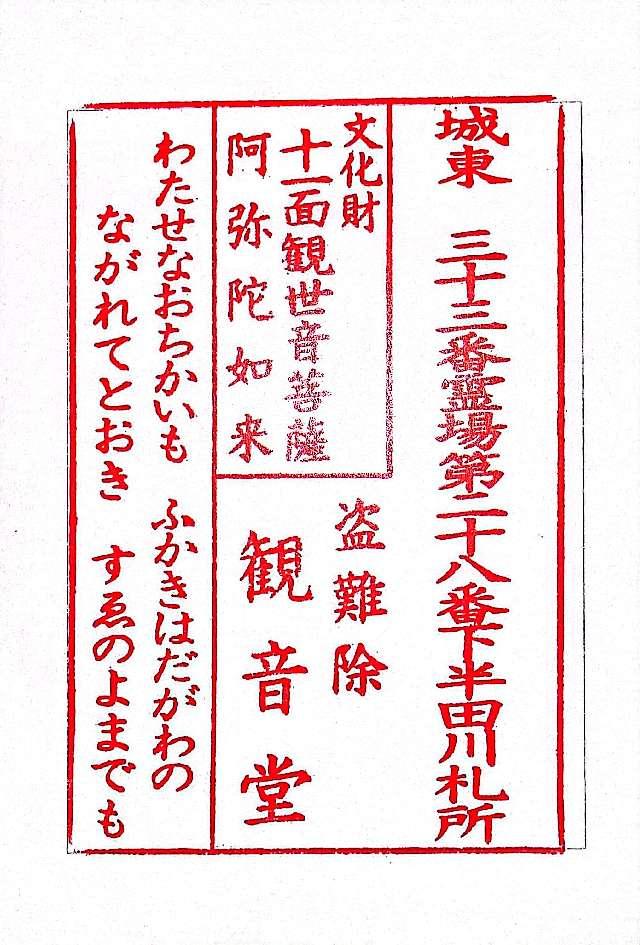 城東 三十三番霊場第二十八番下半田川札所
文化財
十一面観世音菩薩
阿弥陀如来
盗難除
観音堂
わたせなおちかいも ふかきはだがわの
ながれてとおき すゑのよまでも